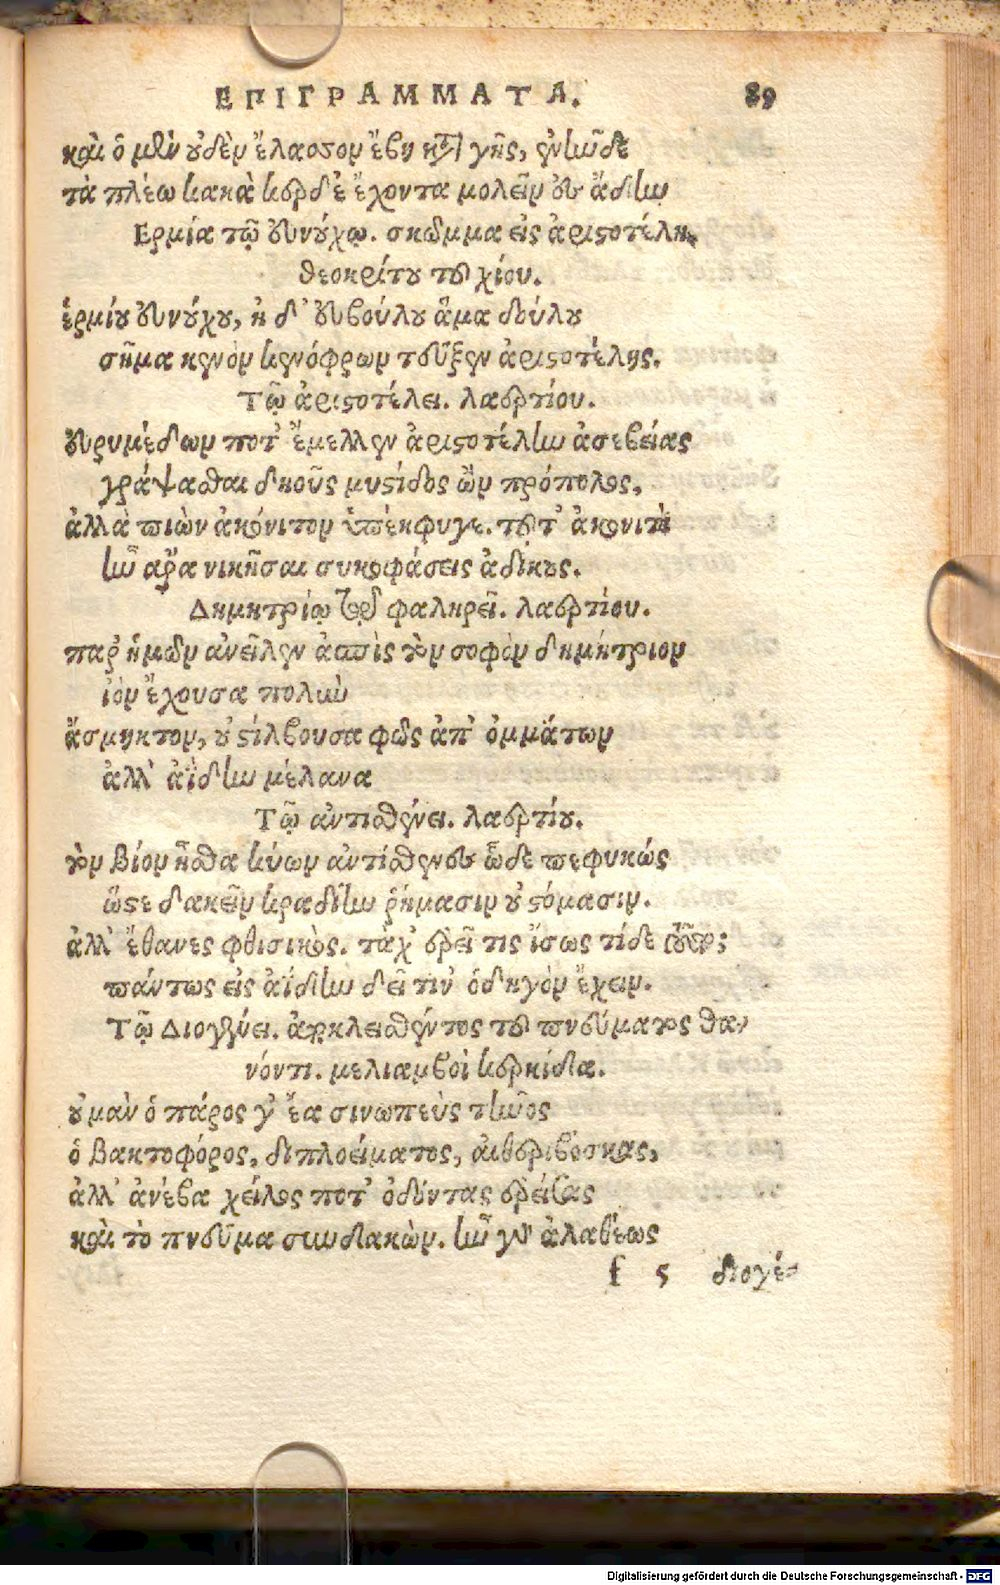 ΕΠΙΓΡΑΜΜΑΤΑ. 89
καὶ ὁ μὲν οὐδὲν ἔλασσον ἔβη κατὰ γῆς, ἦν ὧδε
τὰ πλέω κακὰ κερδὲ ἔχοντα μολεῖν εὖ ἅδην
Ερμία τῷ εὐνούχῳ. σκῶμμα εἰς ἀριστοτέλην
θεοκρίτου τοῦ χίου.
ἑρμίου εὐνούχου, ἠ δ' εὐβούλου ἅμα δούλου
σῆμα κενὸν κενόφρων τεῦξεν ἀριστοτέλης.
Τῷ ἀριστοτέλει. λαερτίου.
εὐρυμέδων ποτ' ἔμελλεν ἀριστοτέλην ἀσεβείας
γράψασθαι δηοῦς μύστιδος ὢν πρόπολος,
ἀλλὰ πιὼν ἀκόνιτον ὑπέκφυγε. τοῦτ' ἀκονιτὶ
ἦν ἄρα νικῆσαι συκοφάσεις ἀδίκους.
Δημητρίῳ τῷ φαληρεῖ. λαερτίου.
παρ' ἡμῶν ἀνεῖλεν ἀσπὶς τὸν σοφὸν δημήτριον
ἰὸν ἔχουσα πολὺν
ἄσμηκτον, οὐ στίλβουσα φῶς ἀπ' ὀμμάτων
ἀλλ' ἀΐδην μέλανα
Τῷ ἀντισθένει. λαερτίου.
τὸν βίον ἦσθα κύων ἀντίσθενες ὧδε πεφυκώς
ὥστε δακεῖν κραδίην ῥήμασιν οὐ στόμασιν.
ἀλλ' ἔθανες φθισικός. τάχ' ἐρεῖ τις ἴσως τί δὲ τοῦτο;
πάντως εἰς ἀΐδην δεῖ τιν' ὁδηγὸν ἔχειν.
Τῷ Διογένει. ἀποκλεισθέντος τοῦ πνεύματος θα-
νόντι. μελιαμβοὶ κερκίδα.
οὐ μὰν ὁ πάρος γ' ἔα σινωπεὺς τῆνος
ὁ βακτοφόρος, διπλοείματος, αἰθεριβόσκας,
ἀλλ' ἀνέβα χεῖλος ποτ' ὀδόντας ἐρείσας
καὶ τὸ πνεῦμα συνδακών. ἦν γὰρ ἀλαθέως
f 5 διογέ-
Digitalisierung gefördert durch die Deutsche Forschungsgemeinschaft - DFG